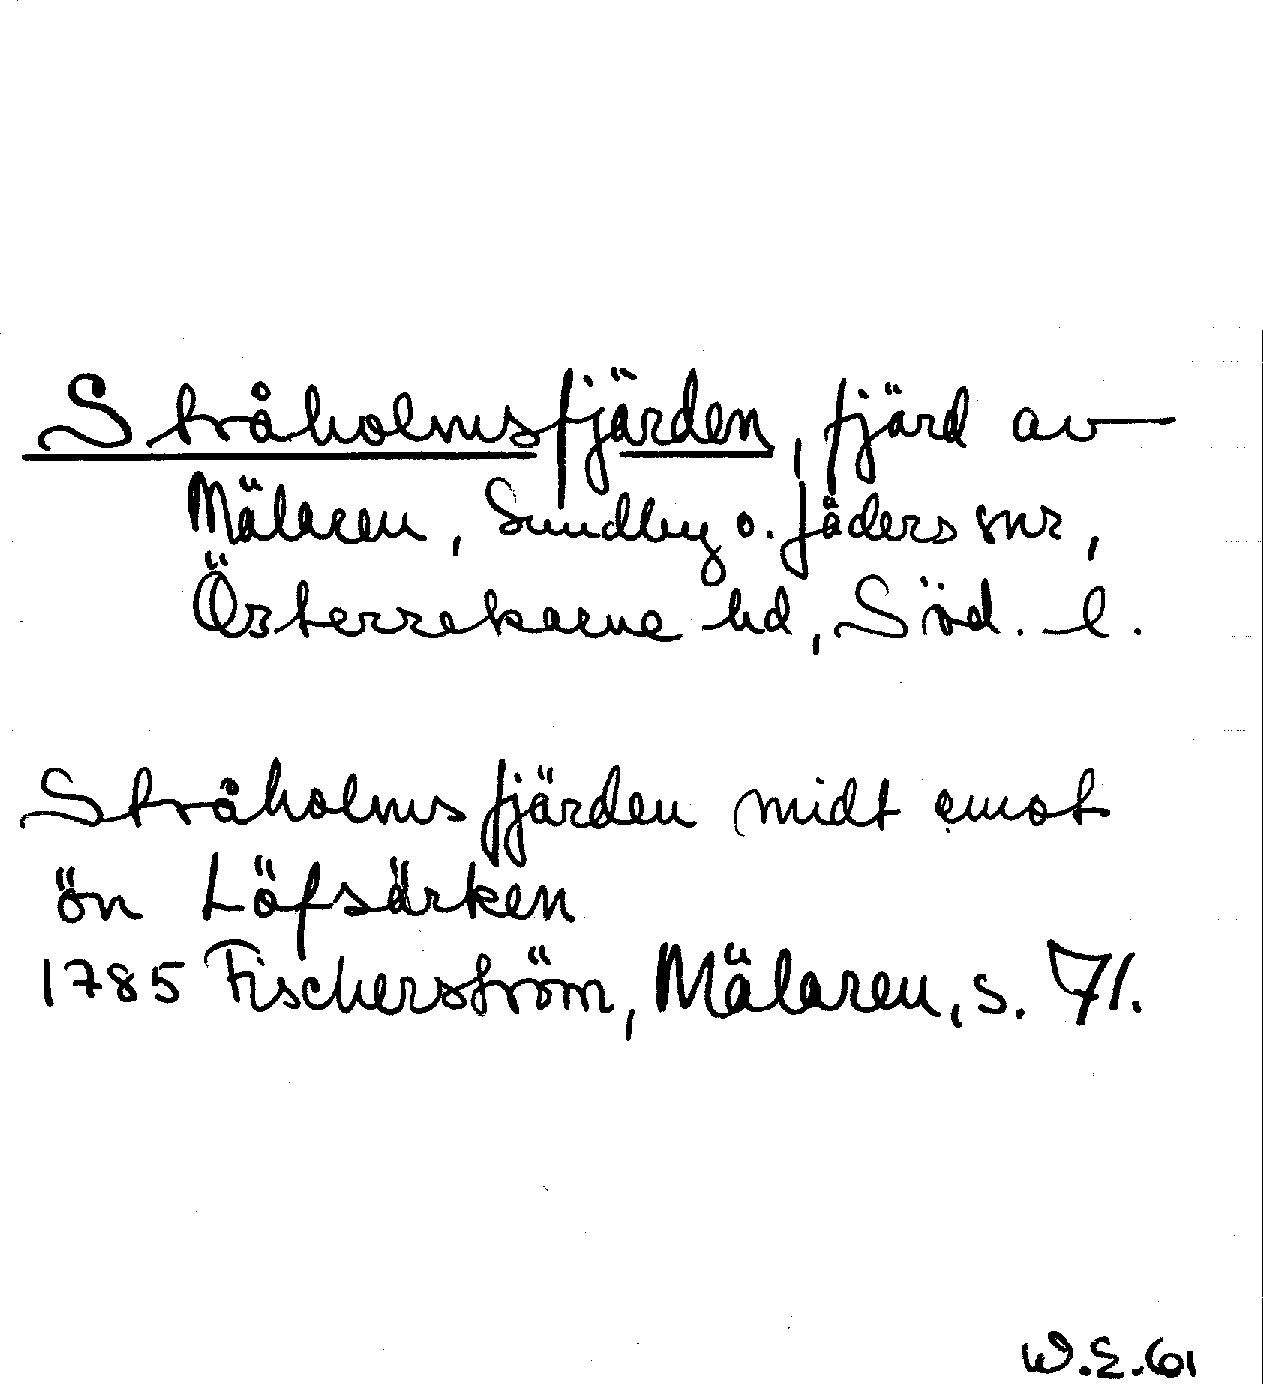 Stråholmsfjärden, fjärd av
Mälaren, Sundby o. Jäders snr,
Österrekarne hd, Söd. l.
Stråholmsfjärden midt emot
ön Löfsärken
1785 Fischerström, Mälaren, s. 71.
W.E.61